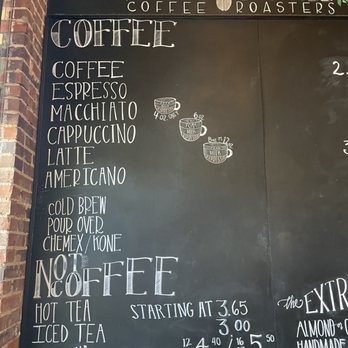 COFFEE ROASTERS
COFFEE
COFFEE
ESPRESSO
MACCHIATO
CAPPUCCINO
LATTE
AMERICANO
COLD BREW
POUR OVER
CHEMEX/KONE
NOT COFFEE
HOT TEA STARTING AT 3.65
ICED TEA 3.00
12 4.40 / 16 5.50
the EXTR
ALMOND
HANDMADE
2.